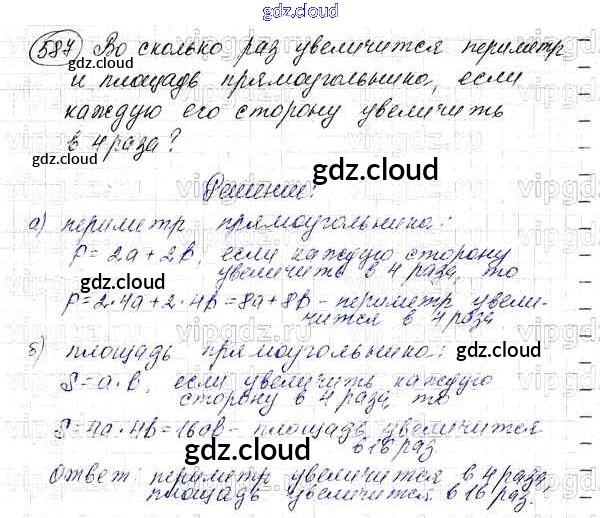 gdz.cloud
587 Во сколько раз увеличится периметр
gdz.cloud
и площадь прямоугольника, если
каждую его сторону увеличить
в 4 раза?
gdz.cloud
gdz.cloud
Решение:
а) периметр прямоугольника:
P=2a+2b, если каждую сторону
увеличить в 4 раза, то
gdz.cloud
gdz.cloud
P=2·4a+2·4b=8a+8b - периметр увели-
чится в 4 раза
б) площадь прямоугольника:
gdz.cloud
S=a·b, если увеличить каждую
сторону в 4 раза, то
gdz.cloud
S=4a·4b=16ab - площадь увеличится
в 16 раз.
gdz.cloud
Ответ: периметр увеличится в 4 раза,
площадь увеличится в 16 раз.
gdz.cloud
gdz.cloud